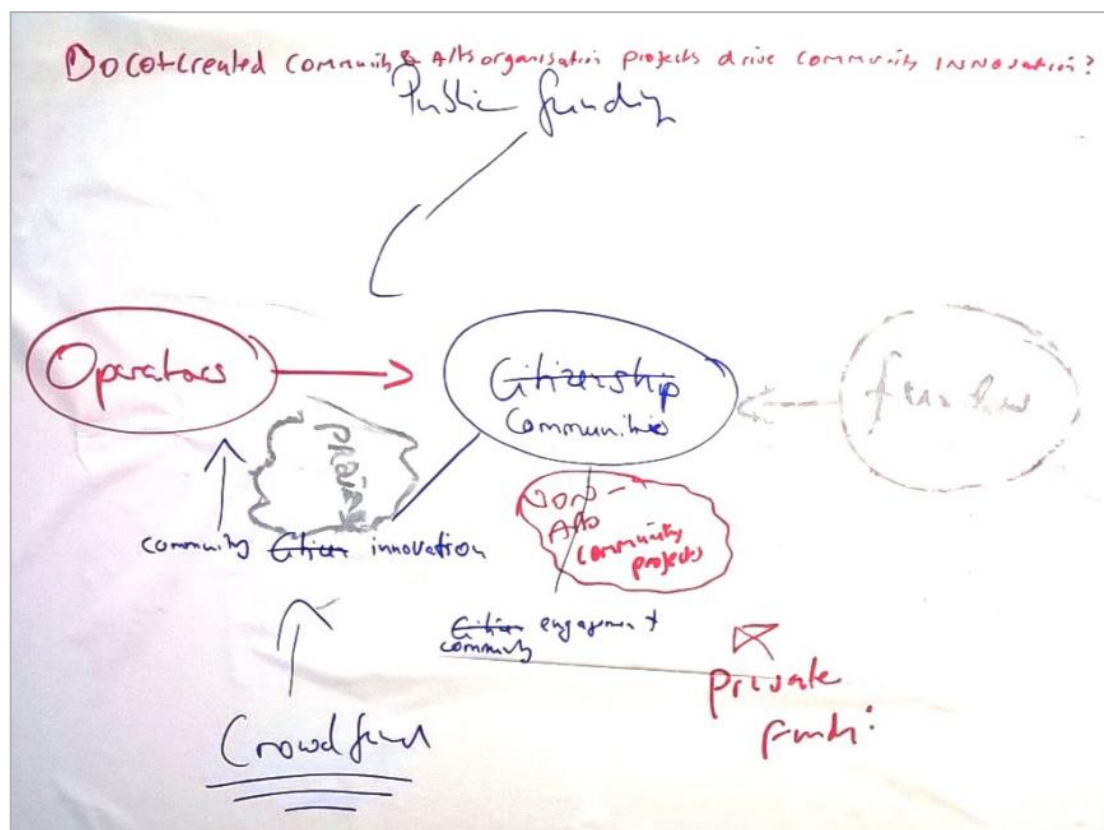 Do cot created community & Arts organisation projects drive community INNOVation?
Public funding
Operators
Citizenship
Communities
funder
community Citizen innovation
NON-
Arts
Community
projects
Citizen engagement
community
Private
Crowdfund